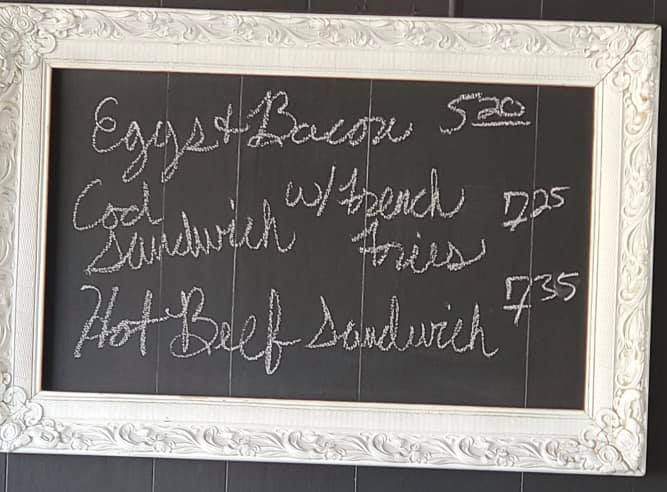 Eggs & Bacon 5 20
Cod w/ French 7 25
Sandwich Fries
Hot Beef Sandwich 7 35